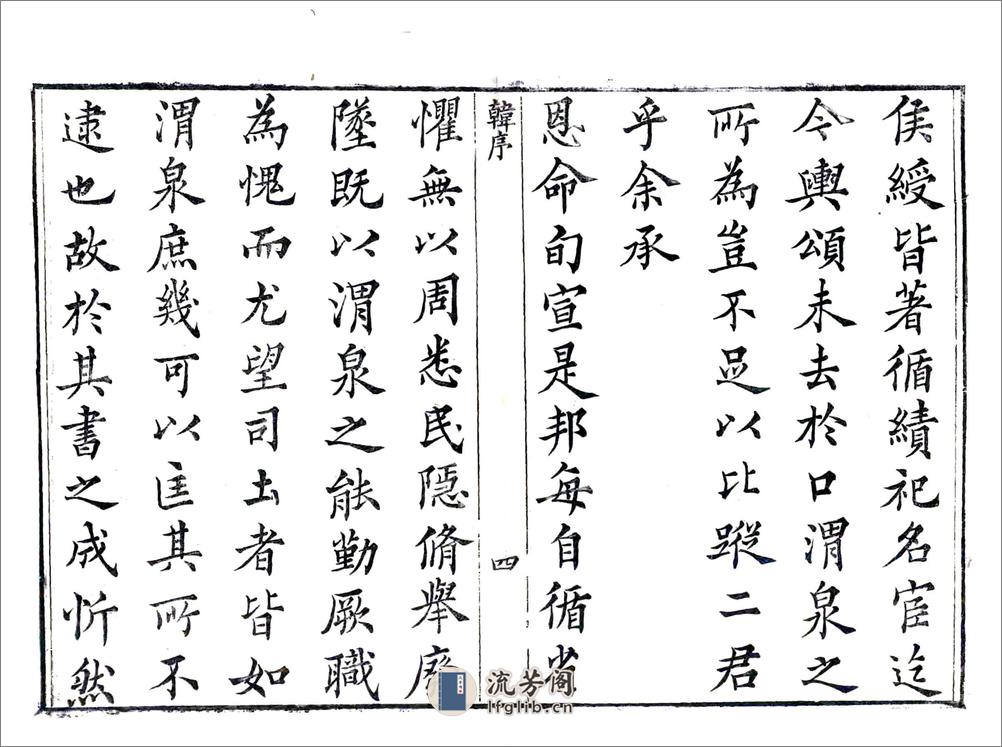 侯綬皆著循績祀名宦迄
今輿頌未去於口渭泉之
所為豈不足以比蹤二君
乎余承
恩命旬宣是邦每自循省
韓序
四
懼無以周悉民隱脩舉廢
墜既以渭泉之能勤厥職
為愧而尤望司土者皆如
渭泉庶幾可以匡其所不
逮也故於其書之成忻然
流芳阁
lfglib.cn